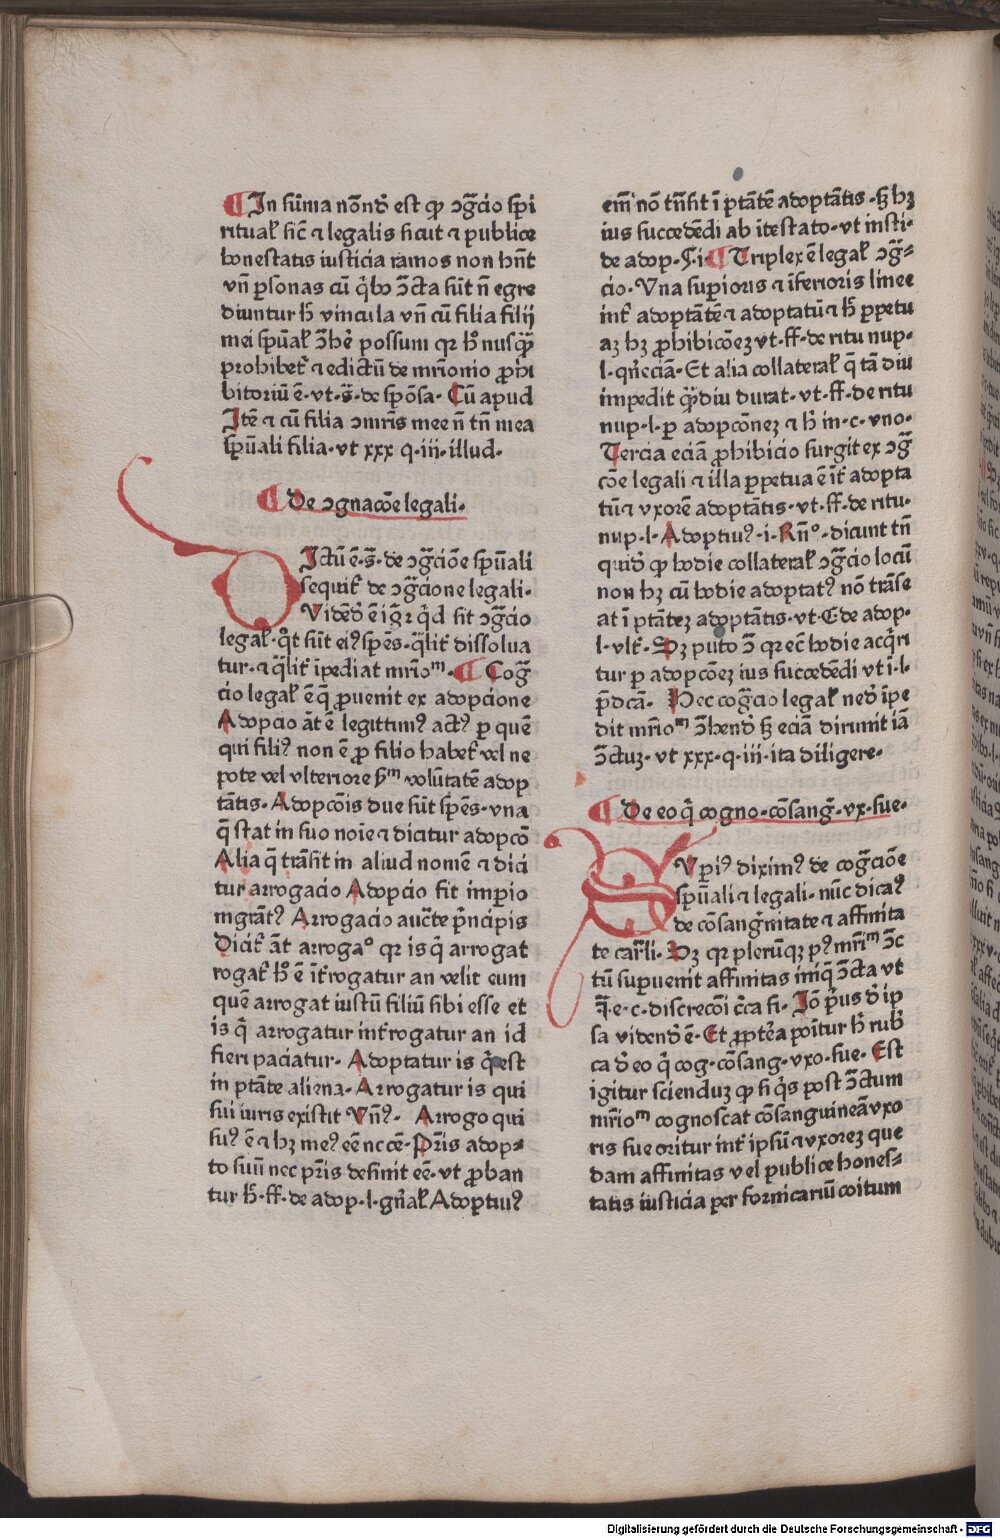 In sũma nõnd' est qꝫ ↄg̃cio spi
ritual' sic̃ ⁊ legalis sicut ⁊ publice
honestatis iusticia ramos non hñt
vñ ꝑsonas cũ q̃bꝰ ↄ̃cta sũt ñ egre
diuntur h̃ vincula vñ cũ filia filij
mei spũal' ↄ̃hẽ possum qꝛ hꝰ nusq̃ꝫ
prohibet' ⁊ edictũ de mr̃ionio ꝓhi
bitoriũ ẽ· vt·s̃·de spõsa· Cũ apud
Itẽ ⁊ cũ filia ↄmr̃is mee ñ tñ mea
spũali filia·vt xxx q·iii·illud·
De ↄgnacõe legali·
Ictũ ẽ·s̃·de ↄg̃ciõe spũali
sequit' de ↄg̃cione legali·
Vidẽd' ẽ ig̃ꝛ q̃d sit ↄg̃cio
legal'·q̊t sũt eiꝰ spẽs·q̃lit' dissolua
tur·⁊ q̃lit' ĩpediat mr̃ioᵐ· Cog̃
cio legal' ẽ q̃ ꝓuenit ex adopcione
Adopcio ãt ẽ legittimꝰ actꝰ ꝑ quẽ
qui filiꝰ non ẽ ꝓ filio habet' vel ne
pote vel vlteriore ẜᵐ volũtatẽ adop
tãtis· Adopcõis due sũt spẽs·vna
q̃ stat in suo noĩe ⁊ dicitur adopcõ
Alia q̃ trãsit in aliud nomẽ ⁊ dici
tur arrogacio Adopcio fit impio
mgrãtꝰ Arrogacio auct̃e p̃ncipis
Dicit' ãt arrogaᵒ qꝛ is q̃ arrogat
rogat' hꝰ ẽ ĩt'rogatur an velit eum
quẽ arrogat iustũ filiũ sibi esse et
is q̃ arrogatur int'rogatur an id
fieri paciatur· Adoptatur is q̃ est
in ptãte aliena· Arrogatur is qui
sui iuris existit Vñꝰ· Arrogo qui
suꝰ ẽ ⁊ hꝫ meꝰ eẽ nc cẽ·Pr̃is adop⸗
to suũ nec pr̃is definit eẽ·vt ꝓban
tur h̃·ff·de adop·l·gñal' Adoptiuꝰ
eim̃ nõ tñsit ĩ ptãtẽ adoptãtis·sꝫ hꝫ
ius succedẽdi ab ĩtestato·vt insti·
de adop·§·i· Triplex ẽ legal' ↄg̃⸗
cio· Vna supioris ⁊ ĩferioris linee
int' adoptãtẽ ⁊ adoptatũ ⁊ h̃ ꝑpetu
aꝫ hꝫ ꝓhibicõeꝫ vt·ff·de ritu nup·
l·qñ eciã· Et alia collateral' q̃ tã diu
impedit q̃ꝫdiu durat·vt·ff·de ritu
nup·l·ꝑ adopcõneꝫ ⁊ h̃ in·c·vno·
Tercia eciã ꝓhibicio surgit ex ↄg̃
cõe legali ⁊ illa ꝑpetua ẽ ĩt' adopta
tũ ⁊ vxorẽ adoptãtis·vt·ff·de ritu·
nup·l·Adoptiuꝰ·i·Rñᵒ·dicunt tñ
quid' qꝫ hodie collateral' ↄg̃cio locũ
non hꝫ cũ hodie adoptatꝰ nõ trãse
at ĩ ptãteꝫ adoptãtis·vt·C de adop·
l·vlt'· Sꝫ puto ↄ̃ qꝛ ec̃ hodie acq̃ri
tur ꝑ adopcõeꝫ ius succedẽdi vt ĩ·l·
p̃dcã· Hec cog̃cio legal' ned' ĩpe
dit mr̃ioᵐ ↄ̃hend' sꝫ eciã dirimit iã
ↄ̃ctuꝫ·vt xxx·q·iii·ita diligere·
De eo q̃ cogno·cõsang̃·vx·sue·
Vpiꝰ diximꝰ de cog̃ciõe
spũali ⁊ legali·nũc dicaꝰ
de cõsang̃nitate ⁊ affinita
te car̃li· Sꝫ qꝛ plerũqꝫ pꝰ mr̃iᵐ ↄ̃c
tũ supuenit affinitas iniq̃ ↄ̃cta vt
q̃·e·c·discrecõi c̃ca fi· Iõ p̃us d' ip
sa vidend' ẽ· Et ꝓpt̃ea põitur h̃ rub'
ca d' eo q̃ cog·cõsang·vxo·sue· Est
igitur sciendũꝫ qꝫ si q̃s post ↄ̃ctum
mr̃ioᵐ cognoscat cõsanguineã vxo
ris sue oritur int' ipsũ ⁊ vxoreꝫ que
dam affinitas vel publice hones⸗
tatis iusticia per fornicariũ coitum
Digitalisierung gefördert durch die Deutsche Forschungsgemeinschaft - DFG